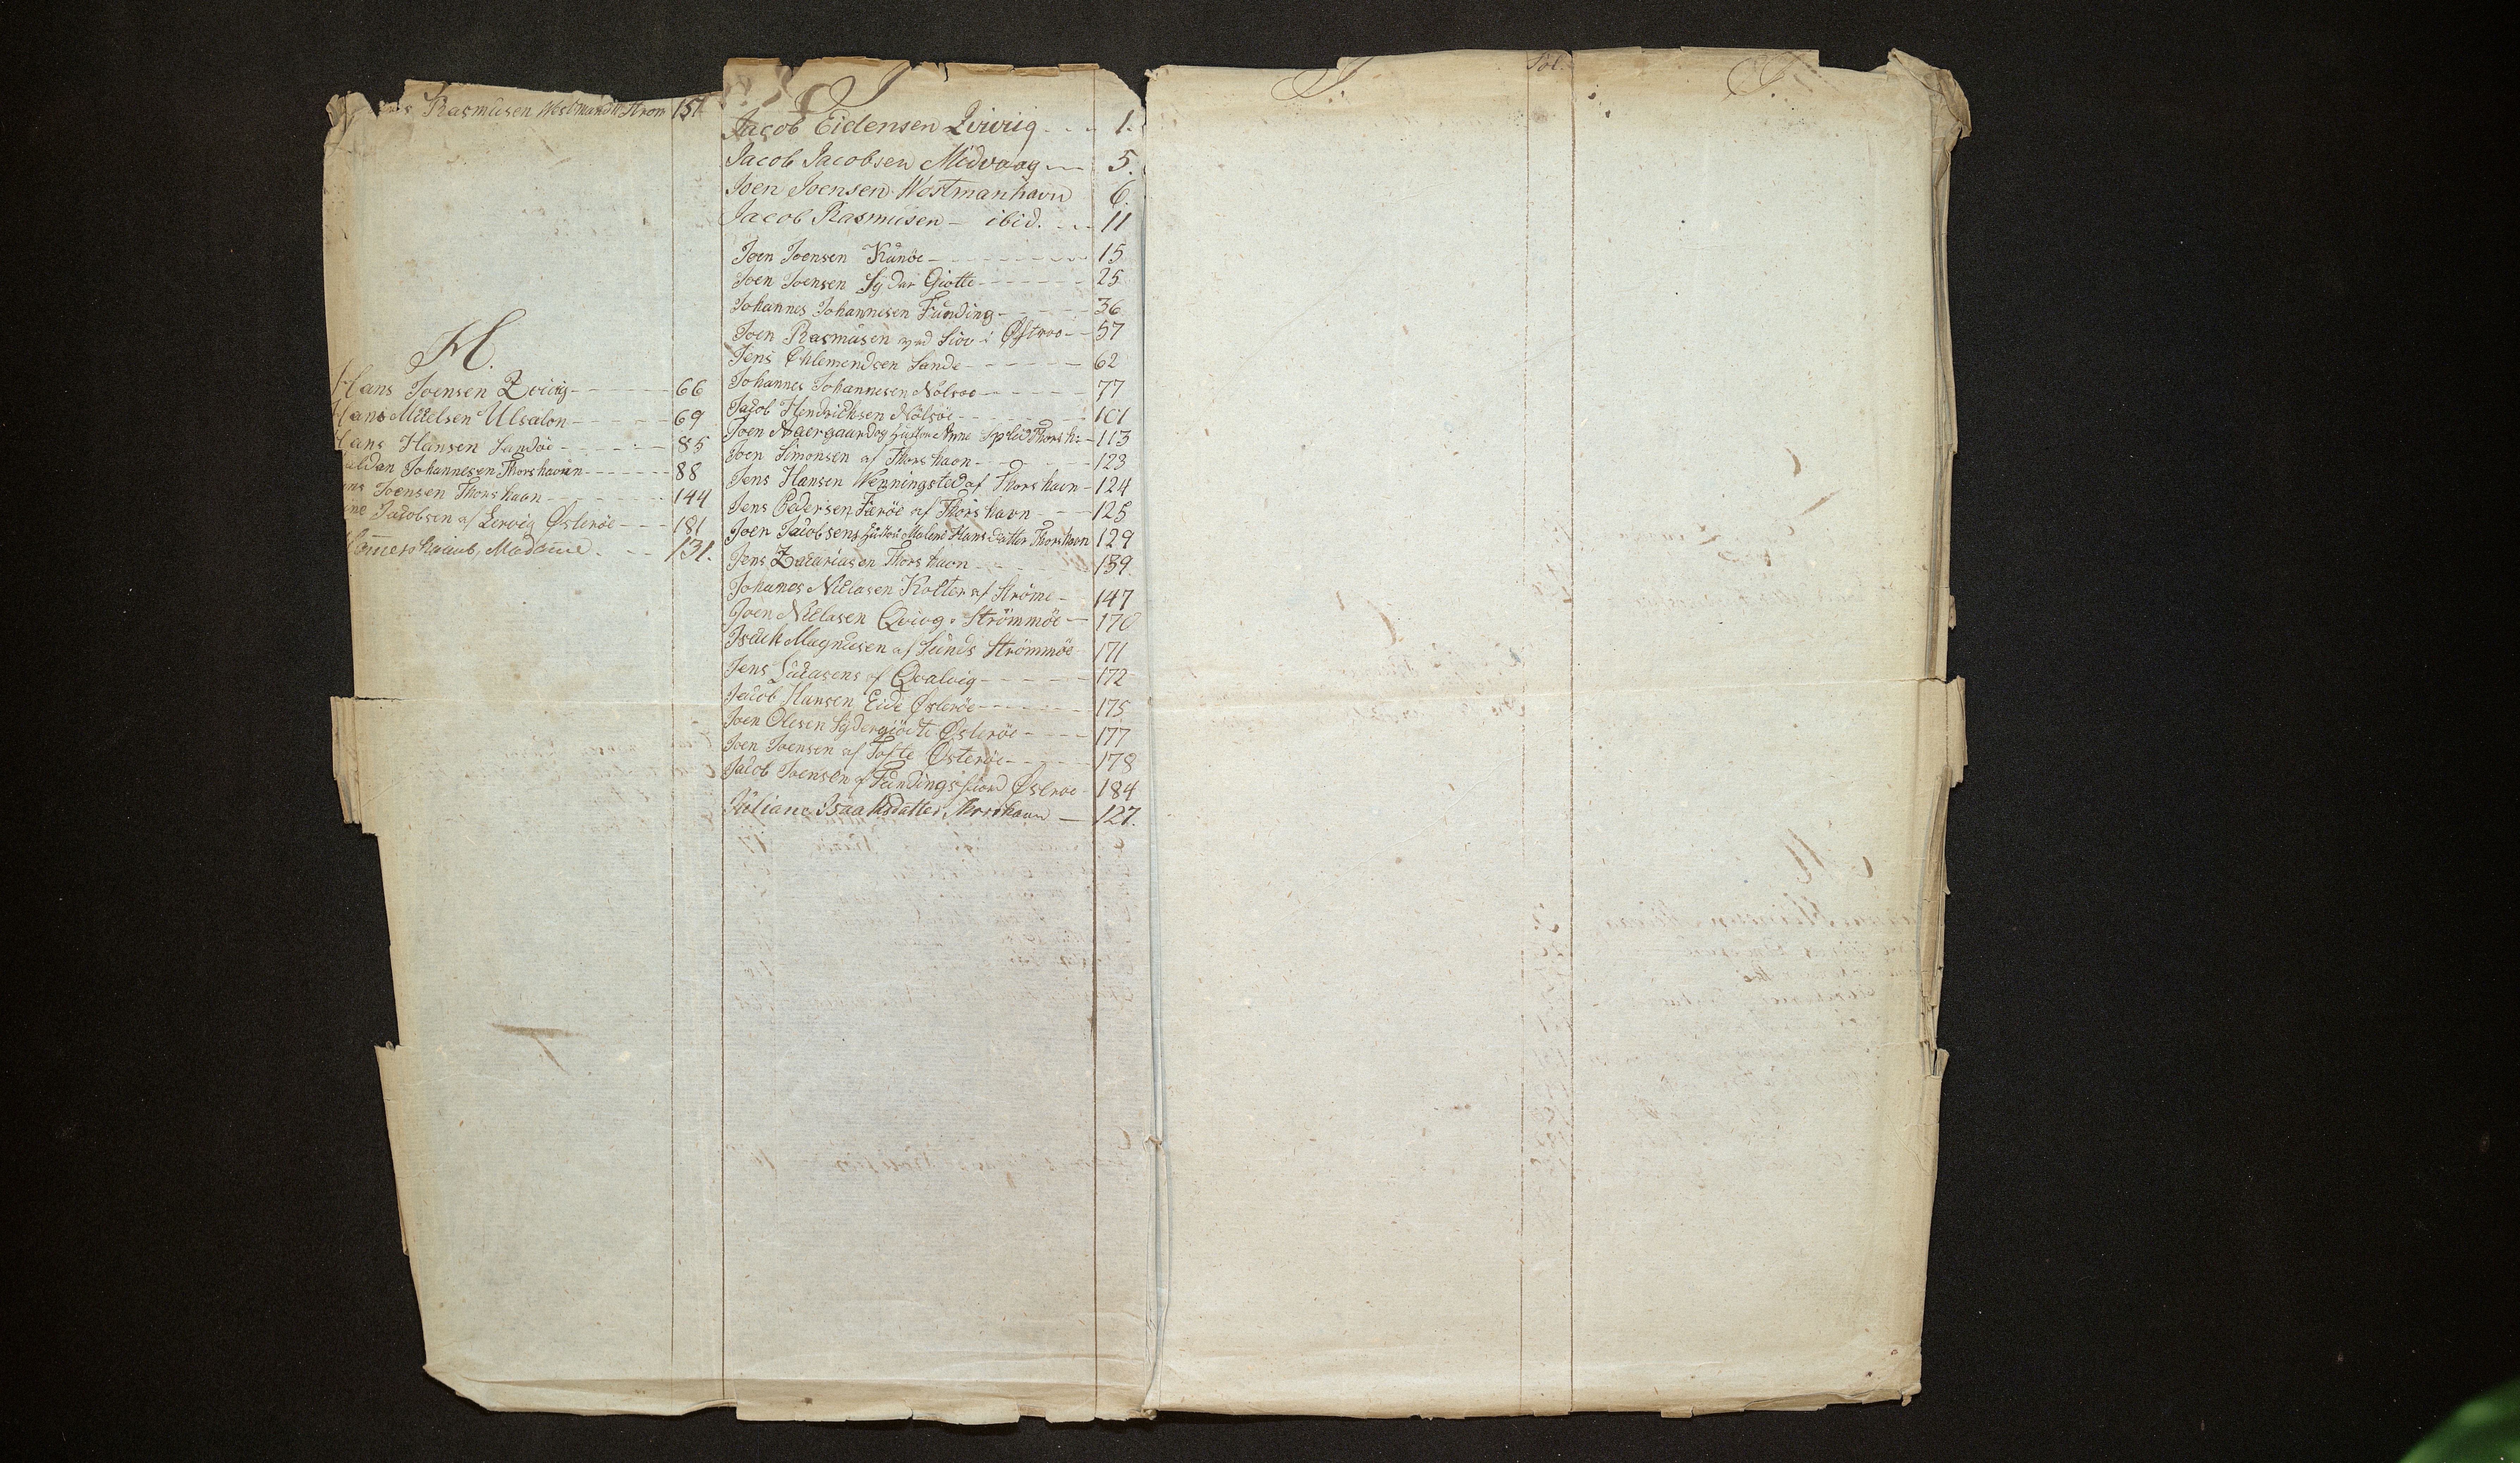 Rasmusen Westmandh: Strom 151
H.
Hans Joensen Zvivig 66
Hans Michelsen Ulsalon 69
Hans Hansen Sandöe 85
aldan Johannesen Thorshavn 88
Joensen Thorshavn 144
Jacobsen af Lervig Österöe 181
Madame 131.
J
Jacob Eidensen Qvivig 1.
Jacob Jacobsen Midvaag 5.
Joen Joensen Westmanhavn 6.
Jacob Rasmusen - ibid. 11
Joen Joensen Kunöe 15
Joen Joensen Sydur Giotte 25
Johannes Johannesen Funding 36
Joen Rasmusen ved Siov i Østroe 57
Jens Chlemendsen Sande 62
Johannes Johannesen Nolsoe 77
Jacob Hendrichsen Nölsöe 101
Joen Aaergaard og hustru Anne Splid Thorsh: 113
Joen Simonsen af Thorshavn 123
Jens Hansen Wenningsted af Thorshavn 124
Jens Pedersen Færöe af Thorshavn 125
Joen Jacobsens hustru Malene Hansdatter Thorshavn 129
Jens Zacariasen Thorshavn 139
Johanes Niclasen Kolter af Ströme 147
Joen Niclasen Qvivg. Strömmöe 170
Isach Magnusen af Sunds Strömmöe 171
Jens Lucasens af Qvalvig 172
Jacob Hansen Eide Østeröe 175
Joen Olesen Sydergiöete Østeröe 177
Joen Joensen af Tofte Österöe 178
Jacob Joensen af Fundingsfiord Österoe 184
Juliane Isaaksdatter, Thorshavn 127.
J.
Fol.
J.